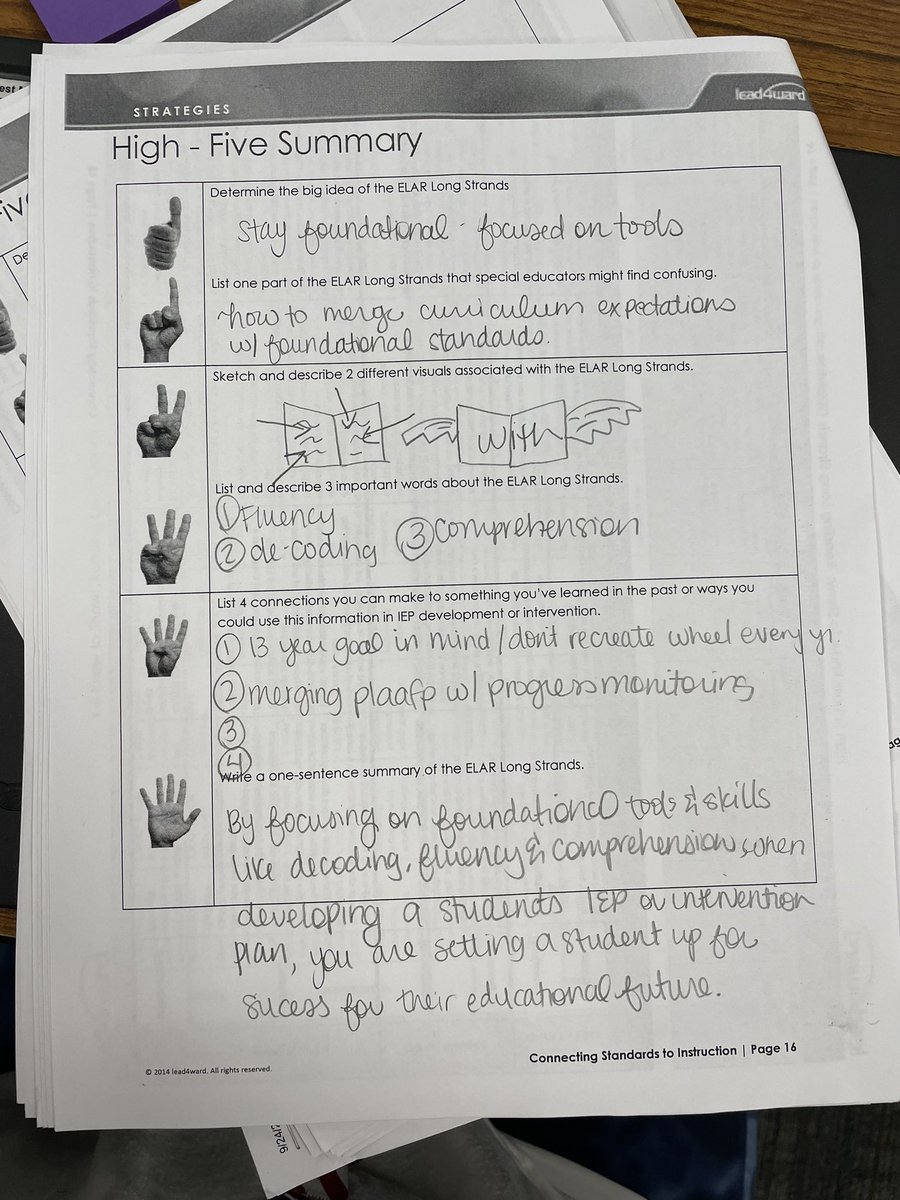 STRATEGIES
lead4ward
High - Five Summary
Determine the big idea of the ELAR Long Strands
stay foundational - focused on tools
List one part of the ELAR Long Strands that special educators might find confusing.
how to merge curriculum expectations
w/ foundational standards.
Sketch and describe 2 different visuals associated with the ELAR Long Strands.
with
List and describe 3 important words about the ELAR Long Strands.
① Fluency
② de-coding ③ comprehension
List 4 connections you can make to something you've learned in the past or ways you
could use this information in IEP development or intervention.
① 13 year goal in mind / don't recreate wheel every yr.
② merging plaafp w/ progress monitoring
③
④
Write a one-sentence summary of the ELAR Long Strands.
By focusing on foundational tools & skills
like decoding, fluency & comprehension, when
developing a students IEP or intervention
plan, you are setting a student up for
sucess for their educational future.
Connecting Standards to Instruction | Page 16
© 2014 lead4ward. All rights reserved.